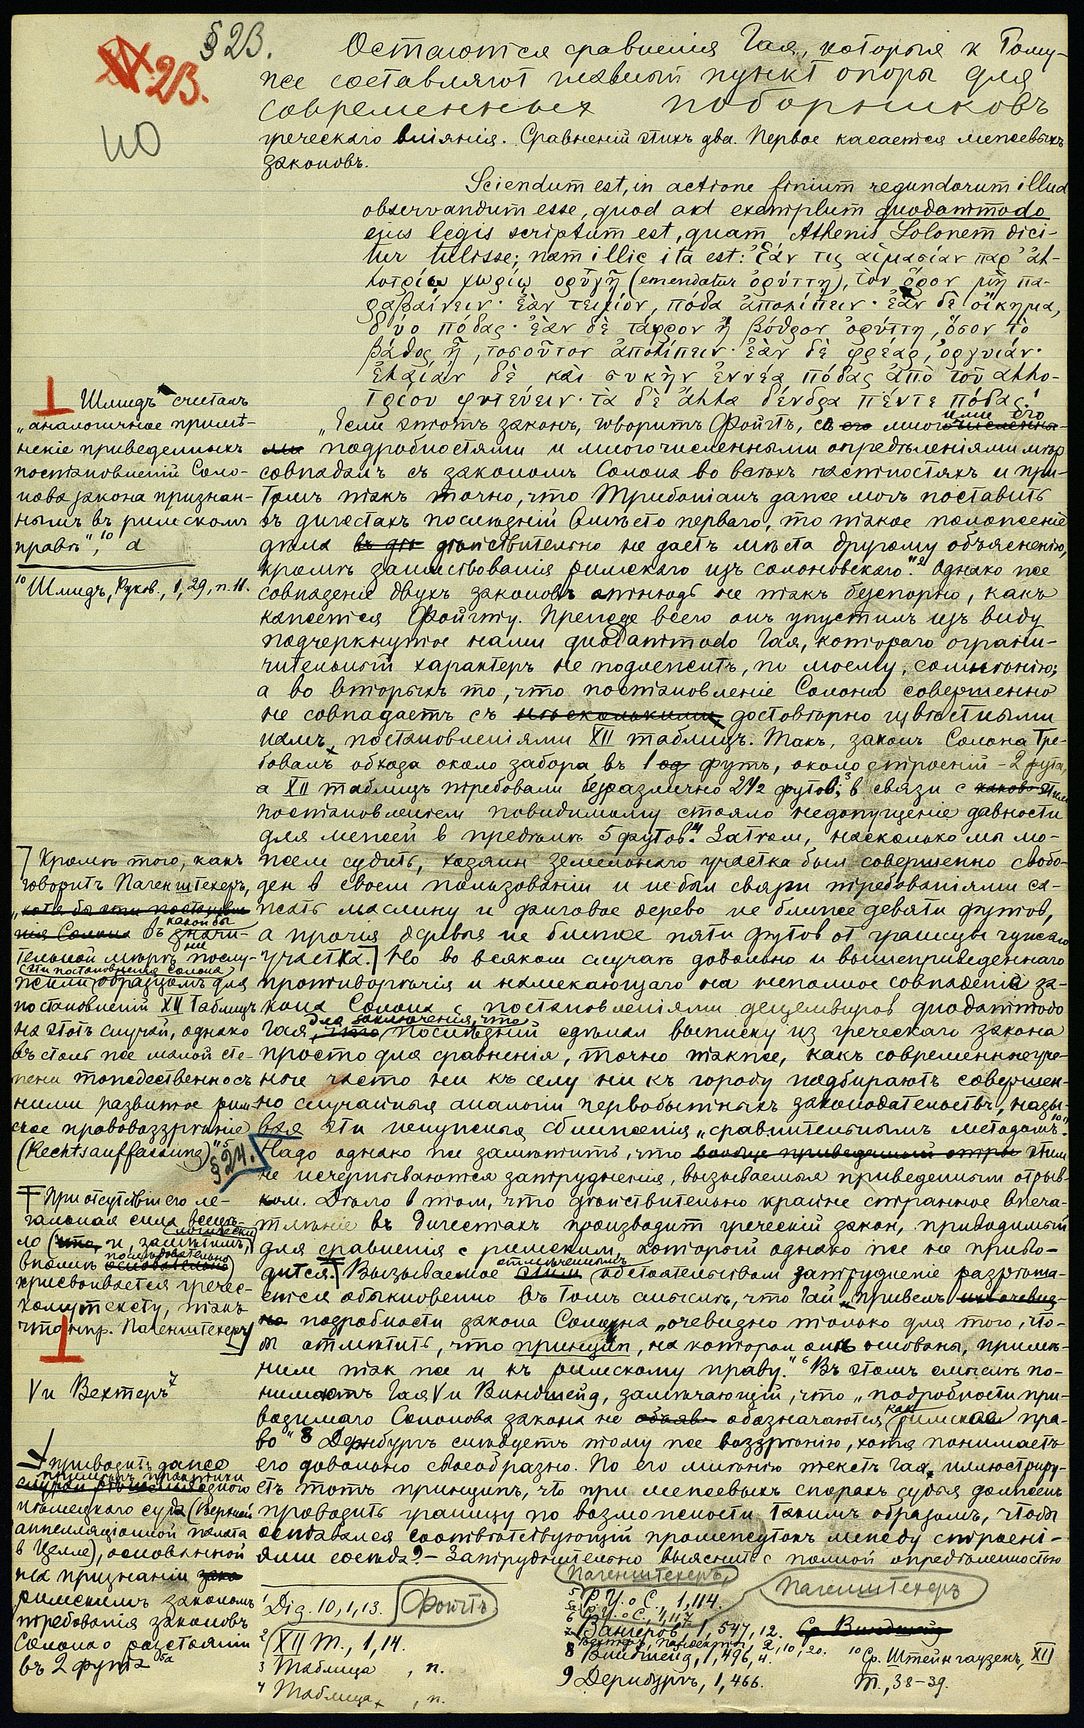 § 23.
XX 23.
110
Остаются сравненія Гая, которыя к тому-
же составляют главный пункт опоры для
современных поборниковъ
греческаго вліянія. Сравненій этихъ два. Первое касается межевыхъ
законовъ.
Sciendum est, in actione finium regundorum illud
observandum esse, quod ad exemplum quodammodo
ejus legis scriptum est, quam Athenis Solonem dici-
tur tulisse; nam illic ita est: Ἐάν τις αἱμασίαν παρ' ἀλ-
λοτρίῳ χωρίῳ ὀρύγῃ (emendatur ὀρύττῃ), τὸν ὅρον μὴ πα-
ραβαίνειν· ἐὰν τειχίον, πόδα ἀπολίπειν· ἐὰν δὲ οἴκημα,
δύο πόδας· ἐὰν δὲ τάφρον ἢ βόθρον ὀρύττῃ, ὅσον τὸ
βάθος ᾖ, τοσοῦτον ἀπολίπειν· ἐὰν δὲ φρέαρ, ὀργυιάν·
ἐλαίαν δὲ καὶ συκῆν ἐννέα πόδας ἀπὸ τοῦ ἀλλο-
τρίου φυτεύειν· τὰ δὲ ἄλλα δένδρα πέντε πόδας.¹
„Если этотъ законъ, говоритъ Фойгтъ, съ его многочисленны-
ми подробностями и многочисленными опредѣленіями мѣр
совпадалъ съ закономъ Солона во всѣхъ частностяхъ и при-
томъ такъ точно, что Трибоніанъ даже могъ поставить
въ дигестахъ последній вмѣсто перваго, то такое положеніе
дѣла въ дѣ дѣйствительно не даетъ мѣста другому объясненію,
кромѣ заимствованія римскаго изъ солоновскаго."² Однако же
совпаденіе двухъ законовъ отнюдь не такъ безспорно, какъ
кажется Фойгту. Прежде всего онъ упустилъ изъ виду
подчеркнутое нами quodammodo Гая, котораго ограни-
чительный характеръ не подлежитъ, по моему, сомнѣнію;
а во вторыхъ то, что постановленіе Солона совершенно
не совпадаетъ съ нѣсколькими достовѣрно извѣстными
намъ постановленіями XII таблицъ. Такъ, законъ Солона тре-
бовалъ обхода около забора въ 1 футъ, около строеній – 2 фута,
а XII таблицъ требовали безразлично 2½ футовъ;³ в связи с этим
постановленіем повидимому стояло недопущеніе давности
для межей в предѣлахъ 5 футов.⁴ Затѣм, насколько мы мо-
жемъ судить, хозяин земельнаго участка был совершенно свобо-
ден в своем пользованіи и не был связан требованіями са-
жать маслину и фиговое дерево не ближе девяти футов,
а прочія деревья не ближе пяти футов от границы чужаго
участка.] Но во всяком случаѣ довольно и вышеприведеннаго
противорѣчія и намекающаго на неполное совпаденіе за-
кона Солона с постановленіями децемвиров quodammodo
Гая, для заключенія, что последній сдѣлал выписку из греческаго закона
просто для сравненія, точно также, какъ современные уче-
ные часто ни къ селу ни къ городу подбирают совершен-
но случайныя аналогіи первобытныхъ законодательствъ, назы-
вая эти ненужныя сближенія „сравнительнымъ методомъ".
§ 24. Надо однако же замѣтить, что вообще приведенный отры этим
не исчерпываются затрудненія, вызываемыя приведеннымъ отрыв-
ком. Дѣло в том, что дѣйствительно крайне странное впеча-
тлѣніе въ Дигестахъ производит греческій закон, приводимый
для сравненія с римским, который однако же не приво-
дится. Вызываемое отмѣченнымъ обстоятельством затрудненіе разрѣша-
ется обыкновенно въ том смыслѣ, что Гай „привелъ
подробности закона Солона „очевидно только для того, что-
бы отмѣтить, что принцип, на котором они основаны, примѣ-
ним так же и къ римскому праву."⁶ Въ этом смыслѣ по-
нимаютъ Гая V и Виндшейд, замѣчающій, что „подробности при-
водимаго Солонова закона не обозначаются как римское пра-
во"⁸ Дернбургъ слѣдуетъ тому же воззрѣнію, хотя понимаетъ
его довольно своеобразно. По его мнѣнію текстъ Гая иллюстриру-
етъ тотъ принцип, что при межевыхъ спорах судья долженъ
проводить границу по возможности таким образом, чтобы
оставался соотвѣтствующій промежуток между строені-
ями сосѣда⁹ – Затруднительно выяснить с полной опредѣленностью
Шмидъ считалъ
„аналогичное примѣ-
неніе приведенныхъ
постановленій Соло-
нова закона признан-
нымъ въ римском
правѣ",¹⁰ а
¹⁰ Шмидъ, Руков., 1, 29, п. 11.
] Кромѣ того, какъ
говоритъ Пагенштехеръ,
„хотя бы эти постановле-
нія Солона въ какой бы значи-
тельной мѣрѣ ни послу-
жили эти постановленія Солона образцомъ для
постановленій XII таблицъ
на этотъ случай, однако
въ столь же малой сте-
пени тождественно съ
ними развитое рим-
ское правовоззрѣніе
(Rechtsauffassung)"⁵
При отсутствіи его ле-
гальная сила всецѣ-
ло (и, замѣтим, логически
вполнѣ послѣдовательно)
присвоивается гречес-
кому тексту, такъ
что нпр. Пагенштехеръ
V и Вехтеръ⁷
приводитъ даже
примѣръ практики одного
нѣмецкаго суда (Верхней
аппелляціонной палаты
в Целле), основанной
на признаніи
римским законом
требованія законовъ
Солона о разстояніи
въ 2 фута ⁵ᵃ
¹ Dig. 10, 1, 13. Фойгтъ
² XII Т., 1, 14.
³ Таблица , п.
⁴ Таблица , п.
Пагенштехеръ,
⁵ Р. У. о С., 1, 114.
⁵ᵃ Р. У. о С., 1, 117
Пагенштехеръ
⁶ Вангеровъ, 1, 547, 12.
⁷ Вехтеръ, Пандекты, 2, 10, 20.
⁸ Виндшейд, 1, 496, 4.
⁹ Дернбургъ, 1, 466.
Ср. Виндшейд
¹⁰ Ср. Штейнгаузен, XII
Т., 38–39.